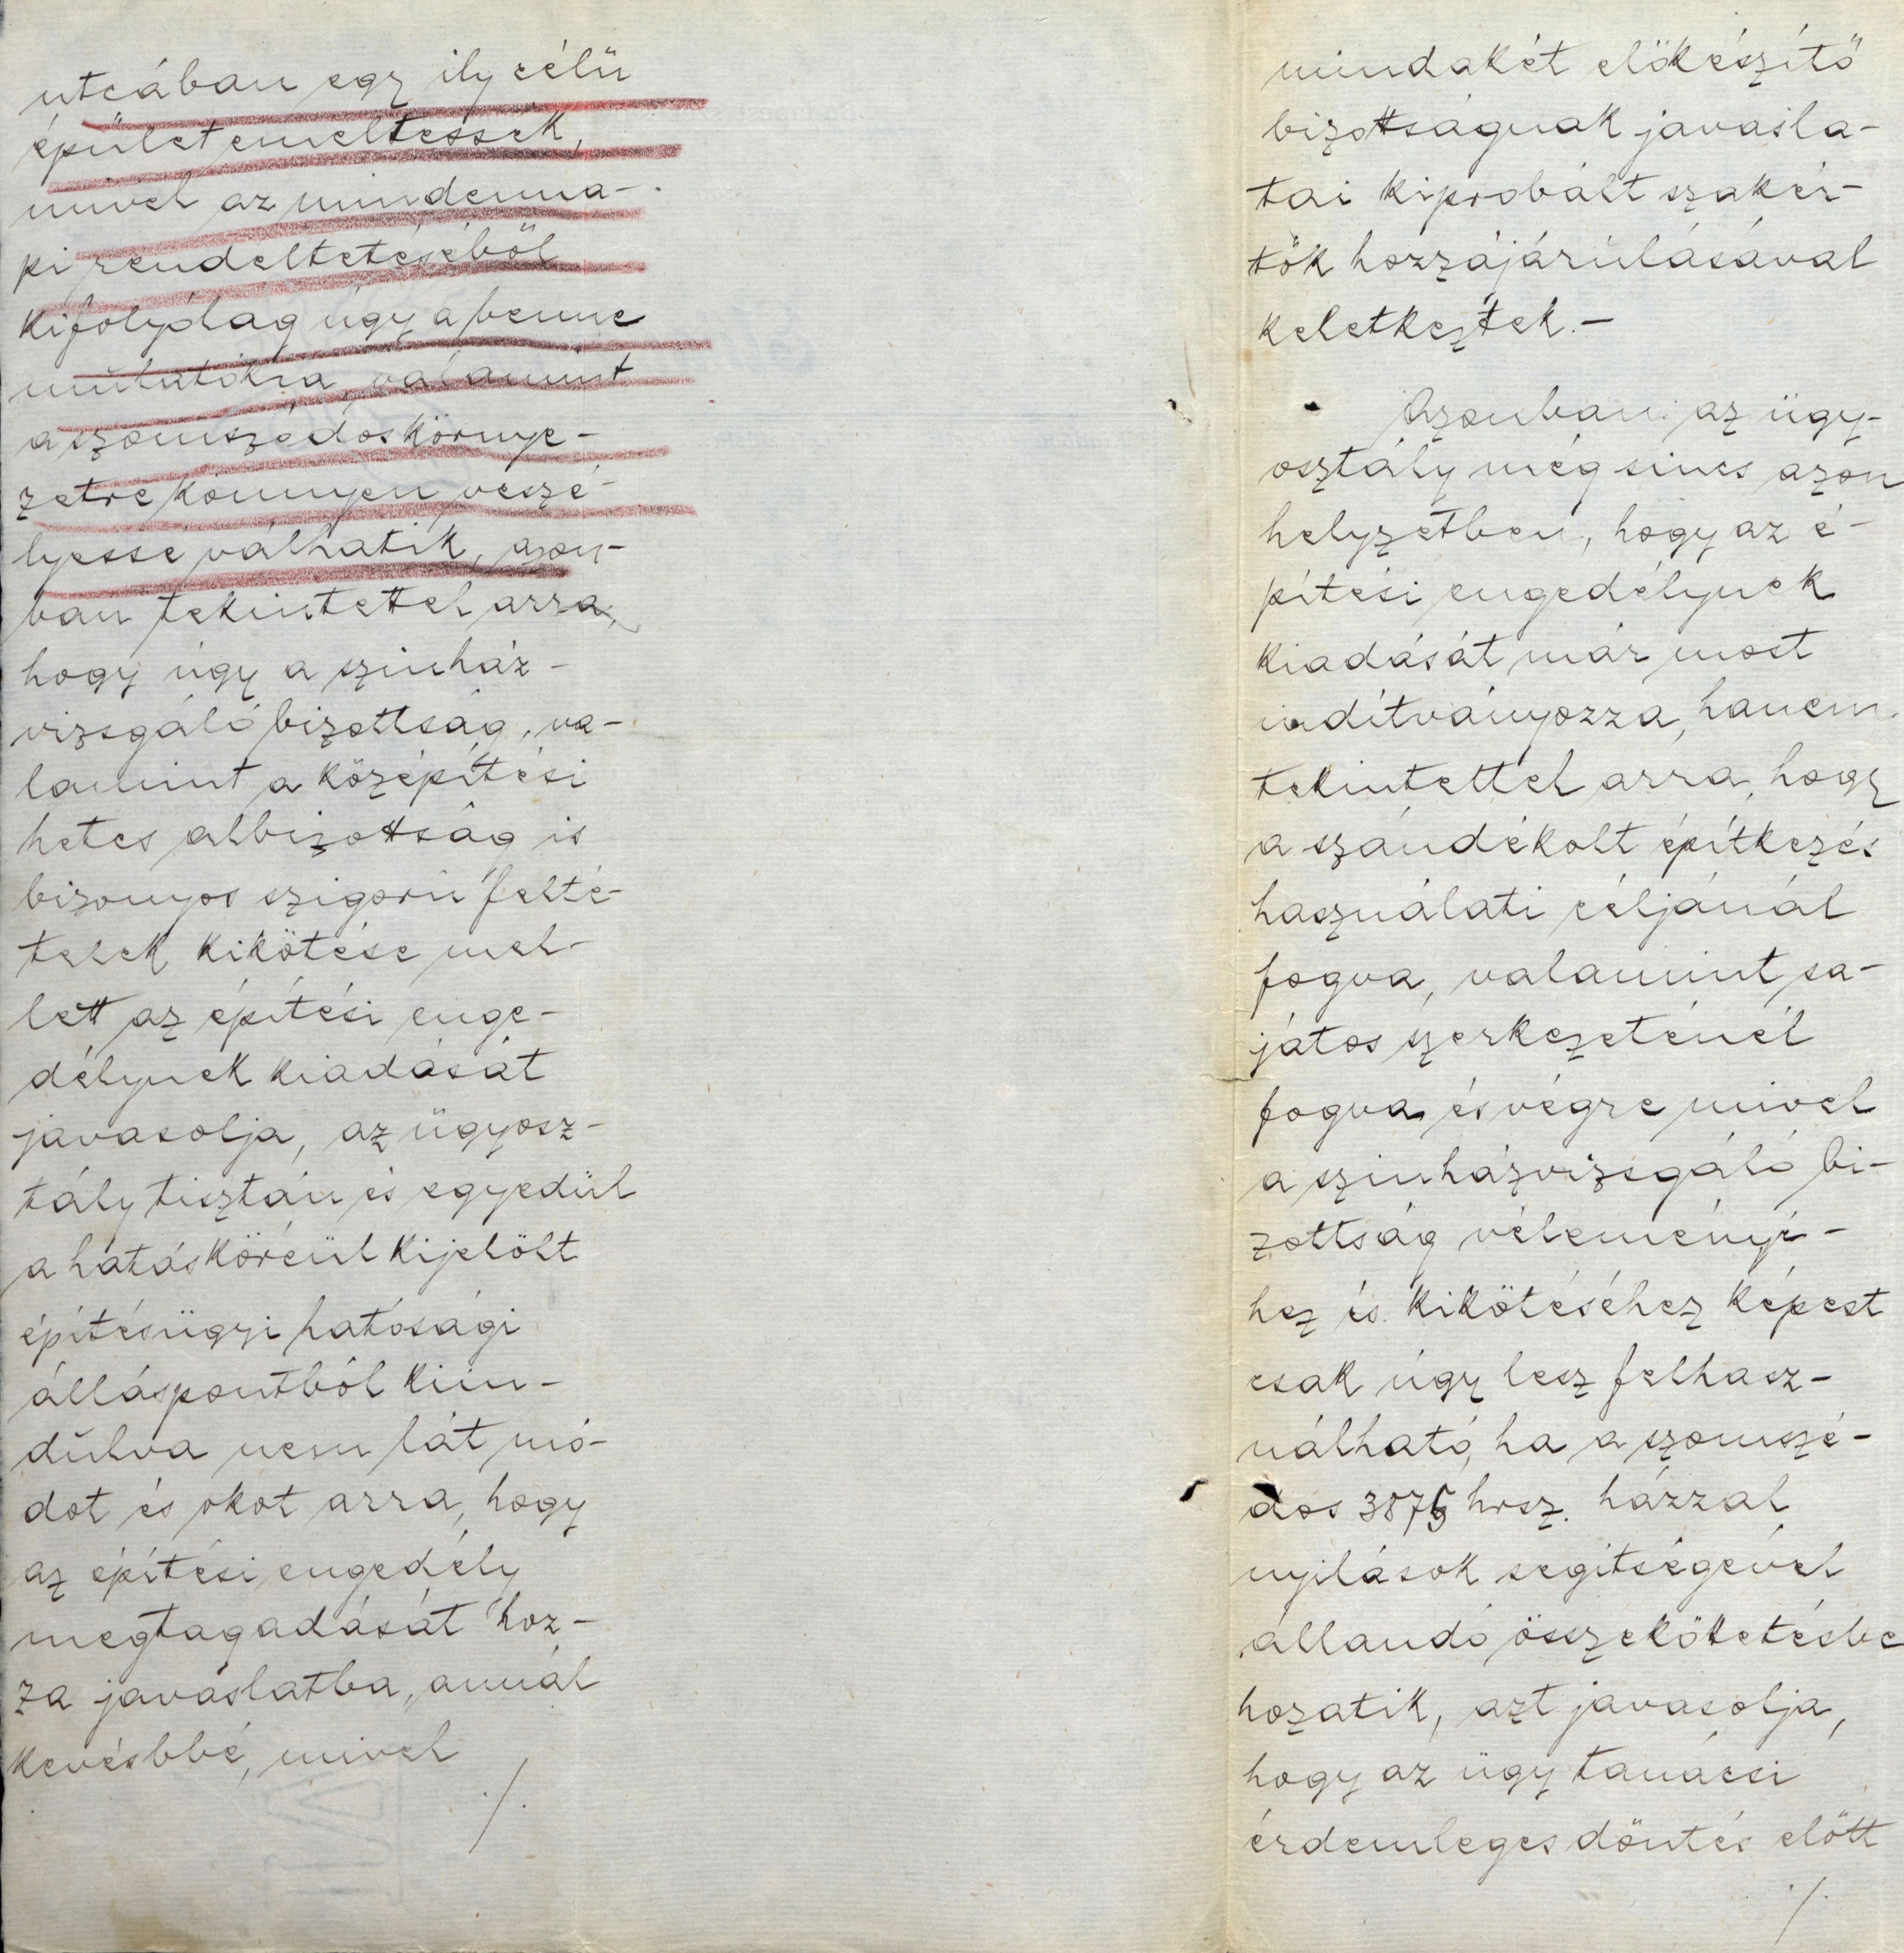 utcában egy ily célü
épület emeltessék,
mivel az mindenna-
pi rendeltetéséből
kifolyólag úgy a benne
mulatókra, valamint
a szomszédos környe-
zetre könnyen veszé-
lyessé válhatik, azon-
ban tekintettel arra,
hogy úgy a szinház-
vizsgáló bizottság, va-
lamint a középítési
hetes albizottság is
bizonyos szigorú felté-
telek kikötése mel-
lett az építési enge-
délynek kiadását
javasolja, az ügyosz-
tály tisztán és egyedül
a hatásköréül kijelölt
építésügyi hatósági
álláspontból kiin-
dúlva nem lát mó-
dot és okot arra, hogy
az építési engedély
megtagadását hoz-
za javaslatba, annál
kevésbbé, mivel
./.
mindakét előkészítő
bizottságnak javasla-
tai kipróbált szakér-
tők hozzájárúlásával
keletkeztek.-
Azonban az ügy-
osztály még sincs azon
helyzetben, hogy az é-
pítési engedélynek
kiadását már most
indítványozza, hanem
tekintettel arra, hogy
a szándékolt építkezés
használati céljánál
fogva, valamint sa-
játos szerkezeténél
fogva és végre mivel
a szinházvizsgáló bi-
zottság véleményé-
hez és kikötéséhez képest
csak úgy lesz felhasz-
nálható, ha a szomszé-
dos 3875 hrsz. házzal
nyilások segítségével
állandó összeköttetésbe
hozatik, azt javasolja,
hogy az ügy tanácsi
érdemleges döntés előtt
./.